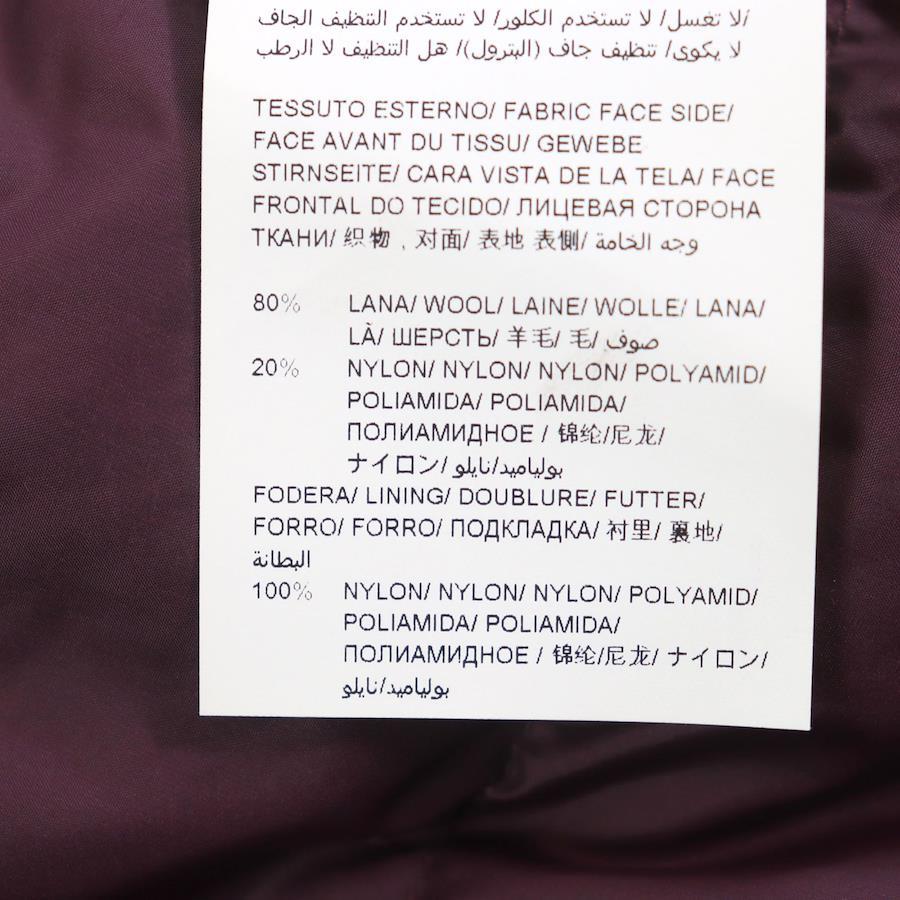 لا تغسل/ لا تستخدم الكلور/ لا تستخدم التنظيف الجاف/
لا يكوى/ تنظيف جاف (البترول)/ هل التنظيف لا الرطب
TESSUTO ESTERNO/ FABRIC FACE SIDE/
FACE AVANT DU TISSU/ GEWEBE
STIRNSEITE/ CARA VISTA DE LA TELA/ FACE
FRONTAL DO TECIDO/ ЛИЦЕВАЯ СТОРОНА
ТКАНИ/ 织物 , 对面/ 表地 表側/ وجه الخامة
80% LANA/ WOOL/ LAINE/ WOLLE/ LANA/
LÀ/ ШЕРСТЬ/ 羊毛/ 毛/ صوف
20% NYLON/ NYLON/ NYLON/ POLYAMID/
POLIAMIDA/ POLIAMIDA/
ПОЛИАМИДНОЕ / 锦纶/尼龙/
ナイロン/ بولياميد/نايلو
FODERA/ LINING/ DOUBLURE/ FUTTER/
FORRO/ FORRO/ ПОДКЛАДКА/ 衬里/ 裏地/
البطانة
100% NYLON/ NYLON/ NYLON/ POLYAMID/
POLIAMIDA/ POLIAMIDA/
ПОЛИАМИДНОЕ / 锦纶/尼龙/ ナイロン/
بولياميد/نايلو